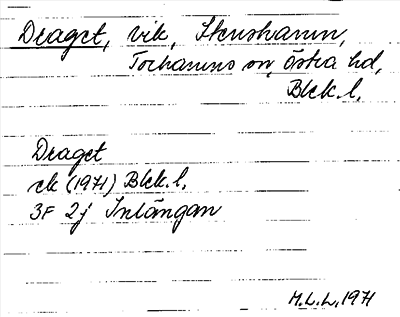 Draget, vik, Stenshamn,
Torhamns sn, östra hd,
Blek. l.
Draget
ek (1971) Blek. l.
3F 2j Inlängan
M.L.L. 1971